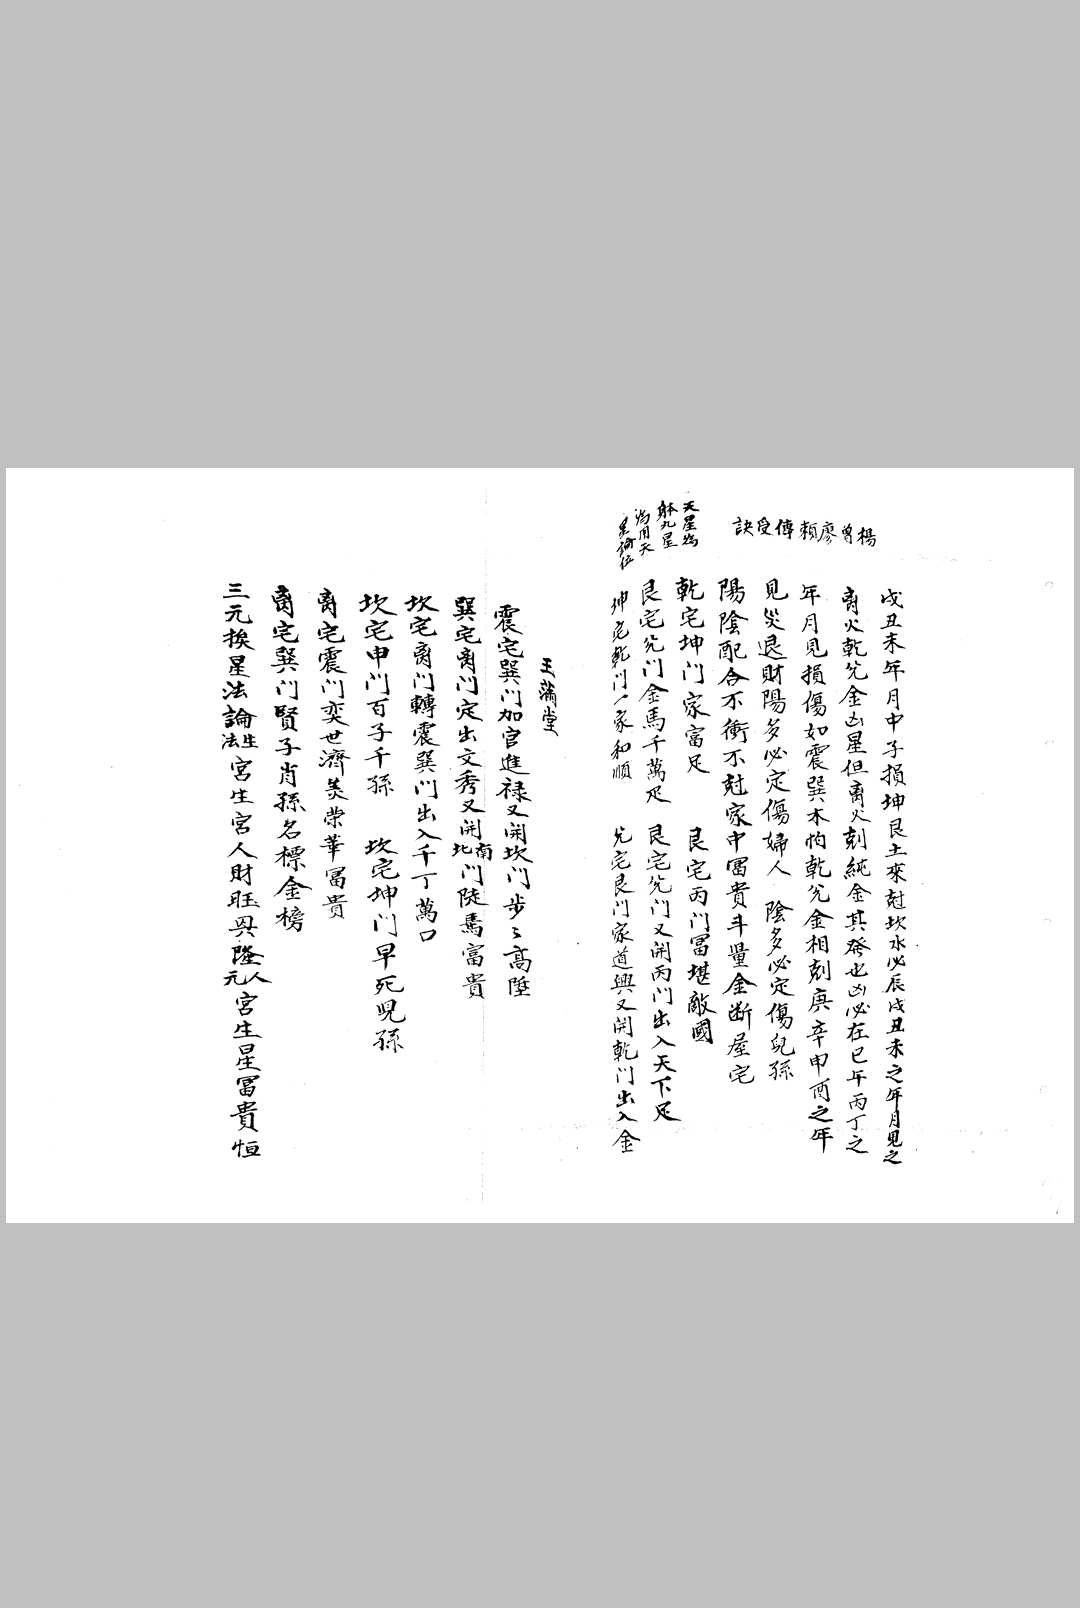 楊曾廖賴傳受訣
戍丑未年月中子損坤艮土來尅坎水必辰戍丑未之年月見之
离火乾兌金凶星但离火剋純金其發也凶必在巳午丙丁之
年月見損傷如震巽木怕乾兌金相剋庚辛申酉之年
見災退財陽多必定傷婦人 陰多必定傷兒孫
陽陰配合不衝不尅家中冨貴斗量金断屋宅
天星為
体九星
為用天
星論位
乾宅坤门家富足 艮宅丙门冨堪敵國
艮宅兌门金馬千萬足 艮宅兌门又開丙门出入天下足
坤宅乾门一家和順 兌宅艮门家道興又開乾门出入金
玉滿堂
震宅巽门加官進禄又開坎门步々高陞
巽宅离门定出文秀又開南北门陡馬富貴
坎宅离门轉震巽门出入千丁萬口
坎宅申门百子千孫 坎宅坤门早死児孫
离宅震门奕世濟美荣華冨貴
离宅巽门賢子肖孫名標金榜
三元挨星法論生法宮生宮人財旺興隆人元宮生星冨貴恒